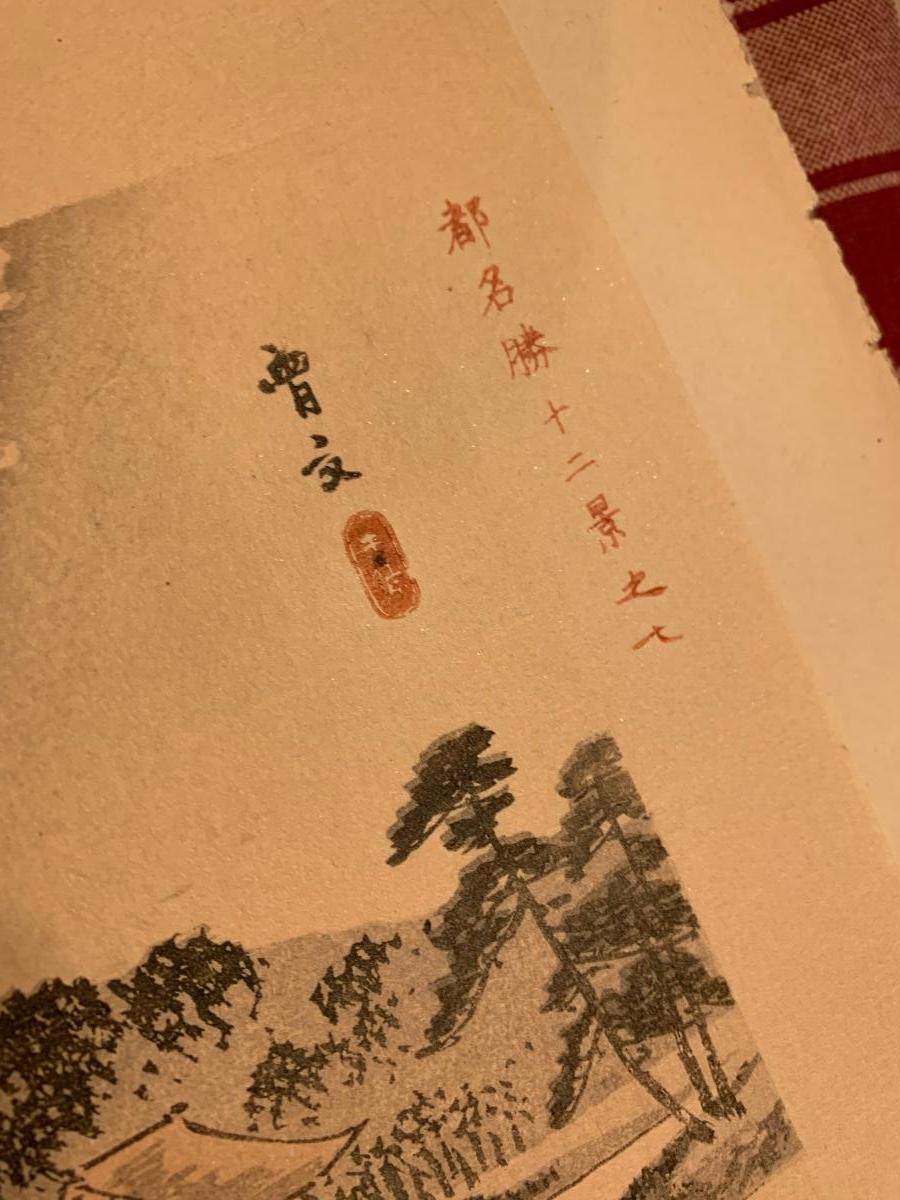 都名勝十二景之七
曽文